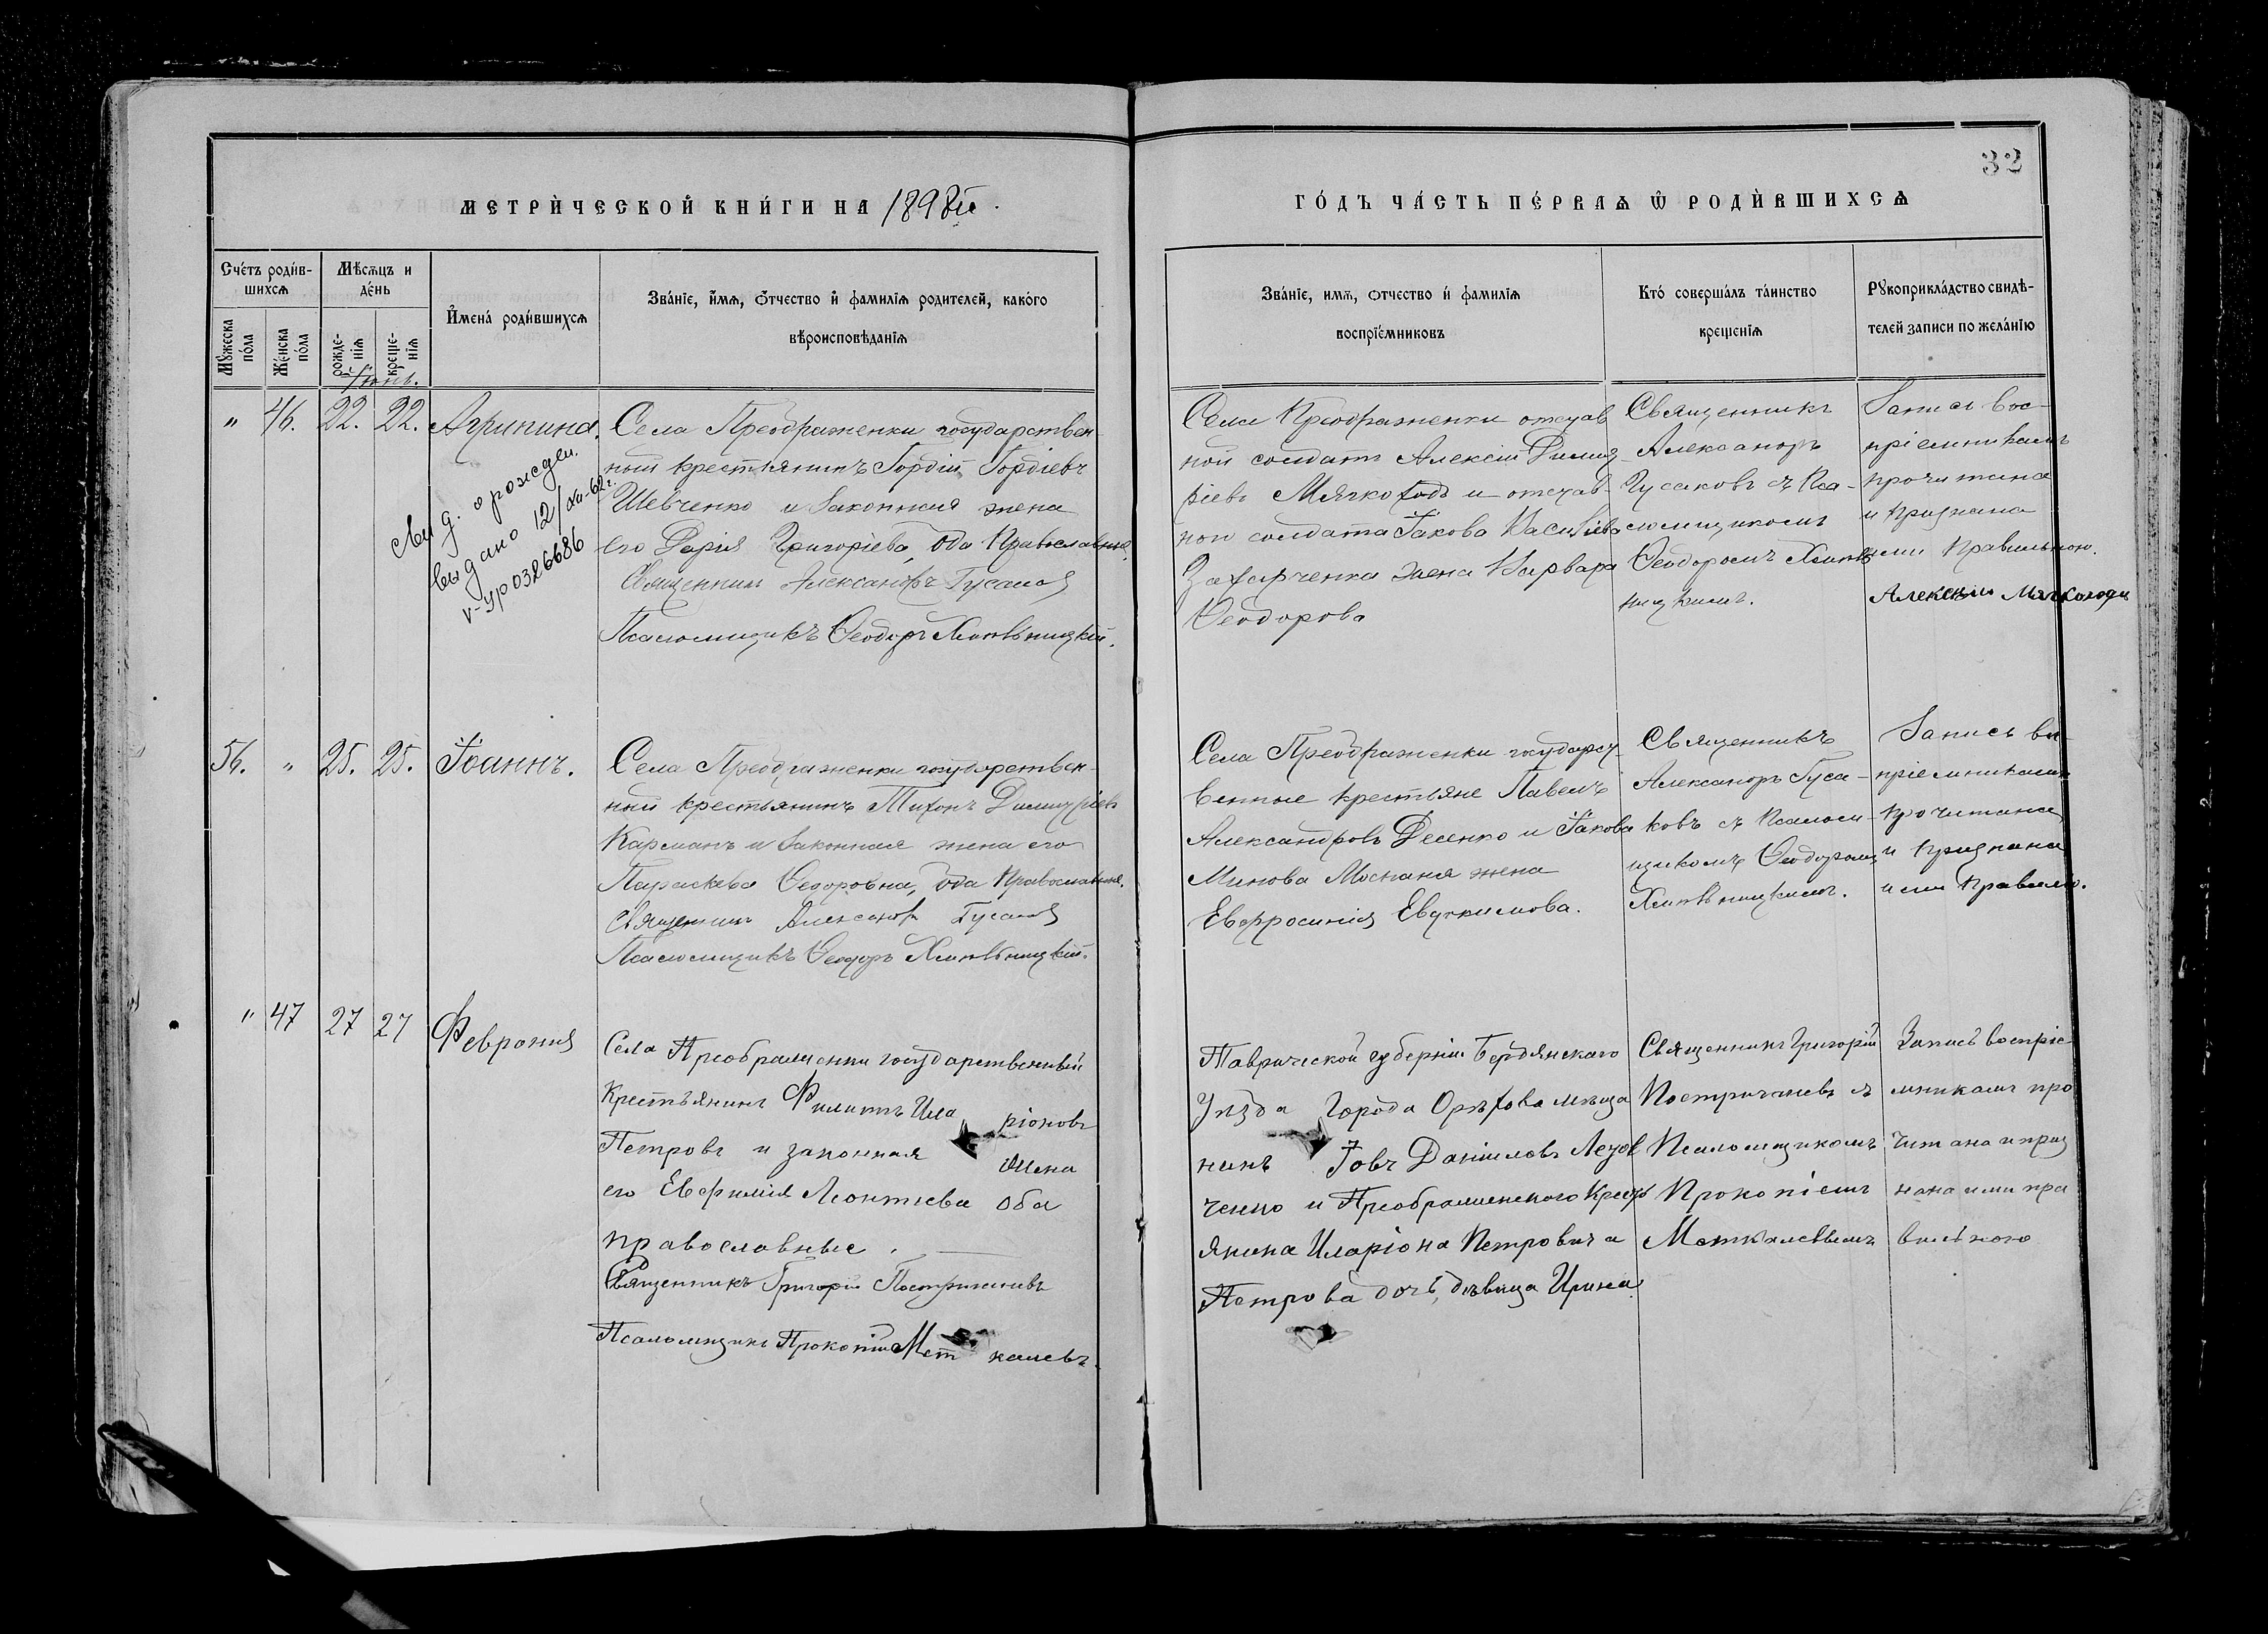 32
МЕТРИ́ЧЕСКОЙ КНИ́ГИ НА 1898й.
ГО́ДЪ ЧА́СТЬ ПЕ́РВАѦ Ѿ РОДИ́ВШИХСѦ
Сче́тъ роди́в-
шихсѧ
Мꙋжеска
по́ла
Же́нска
по́ла
Мѣ́сѧцъ и
де́нь
рожде-
нїѧ
креще-
нїѧ
И҆мена́ роди́вшихсѧ
Зва́нїе, и҆́мѧ, ѻ҆́тчество и҆ фамилїѧ родителей, како́го
вѣроисповѣ́данїѧ
Зва́нїе, имѧ, ѻтчество и҆ фамилїѧ
воспрїе́мниковъ
Кто́ соверша́лъ та́инство
крещенїѧ
Рꙋкоприкла́дство свидѣ́-
телей записи по жела́нїю
Іюнь.
" 46. 22. 22. Агрипина.
Свид. о рожден.
выдано 12/XII-62г.
V-УР 0326686
Села Преображенки государствен-
ный крестьянинъ Гордій Гордіевъ
Шевченко и законная жена
его Дарія Григоріева, оба Православные.
Священникъ Александръ Гусаковъ
Псаломщикъ Ѳеодоръ Хмѣльницкій.
Села Преображенки отстав-
ной солдатъ Алексій Димит-
ріевъ Мягкоходъ и отстав-
ного солдата Іакова Василіева
Захарченка жена Варвара
Ѳеодорова
Священникъ
Александръ
Гусаковъ съ Пса-
ломщикомъ
Ѳеодоромъ Хмѣль
ницкимъ.
Запись вос-
пріемникамъ
прочитана
и признана
ими правильною.
Алексей Мягкоходъ
56. " 25. 25. Іоаннъ.
Села Преображенки государствен-
ный крестьянинъ Тихонъ Димитріевъ
Карманъ и законная жена его
Параскева Ѳедоровна, оба Православные.
Священникъ Александръ Гусаковъ
Псаломщикъ Ѳеодоръ Хмѣльницкій.
Села Преображенки государст-
венные крестьяне Павелъ
Александровъ Деленко и Іакова
Минова жена
Евфросинія Евдокимова.
Священникъ
Александръ Гуса-
ковъ съ Псалом-
щикомъ Ѳеодоромъ
Хмѣльницкимъ.
Запись во-
пріемникамъ
прочитана
и признана
ими правиль.
" 47 27 27 Февронія
Села Преображенки государственный
Крестьянинъ Филиппъ Иларіоновъ
Петровъ и законная жена
его Евфимія Леонтіева оба
православные.
Священникъ Григорій Постригачевъ
Псаломщикъ Прокопій Меткалевъ.
Таврической губерніи Бердянскаго
Уѣзда Города Орѣхова мѣща
нинъ Іовъ Даніиловъ
ченко и Преображенского Крест
янина Иларіона Петровича
Петрова дочь, дѣвица Ирина.
Священникъ Григорій
Постригачевъ съ
Псаломщикомъ
Прокопіемъ
Меткалевымъ
Запись воспріе
мникамъ про
читана и приз
нана ими пра
вильною